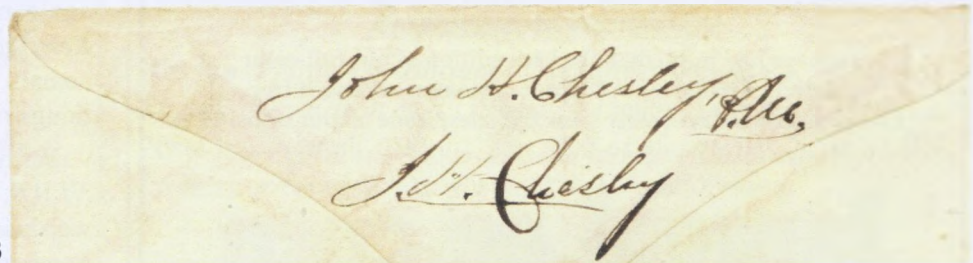 John H. Chesley, P.M.
J.H. Chesley